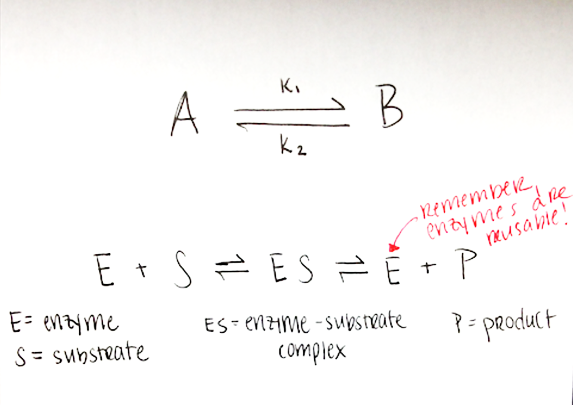 K1
A ⇌ B
K2
remember,
enzymes are
reusable!
E + S ⇌ ES ⇌ E + P
E = enzyme
S = substrate
ES = enzyme-substrate
complex
P = product